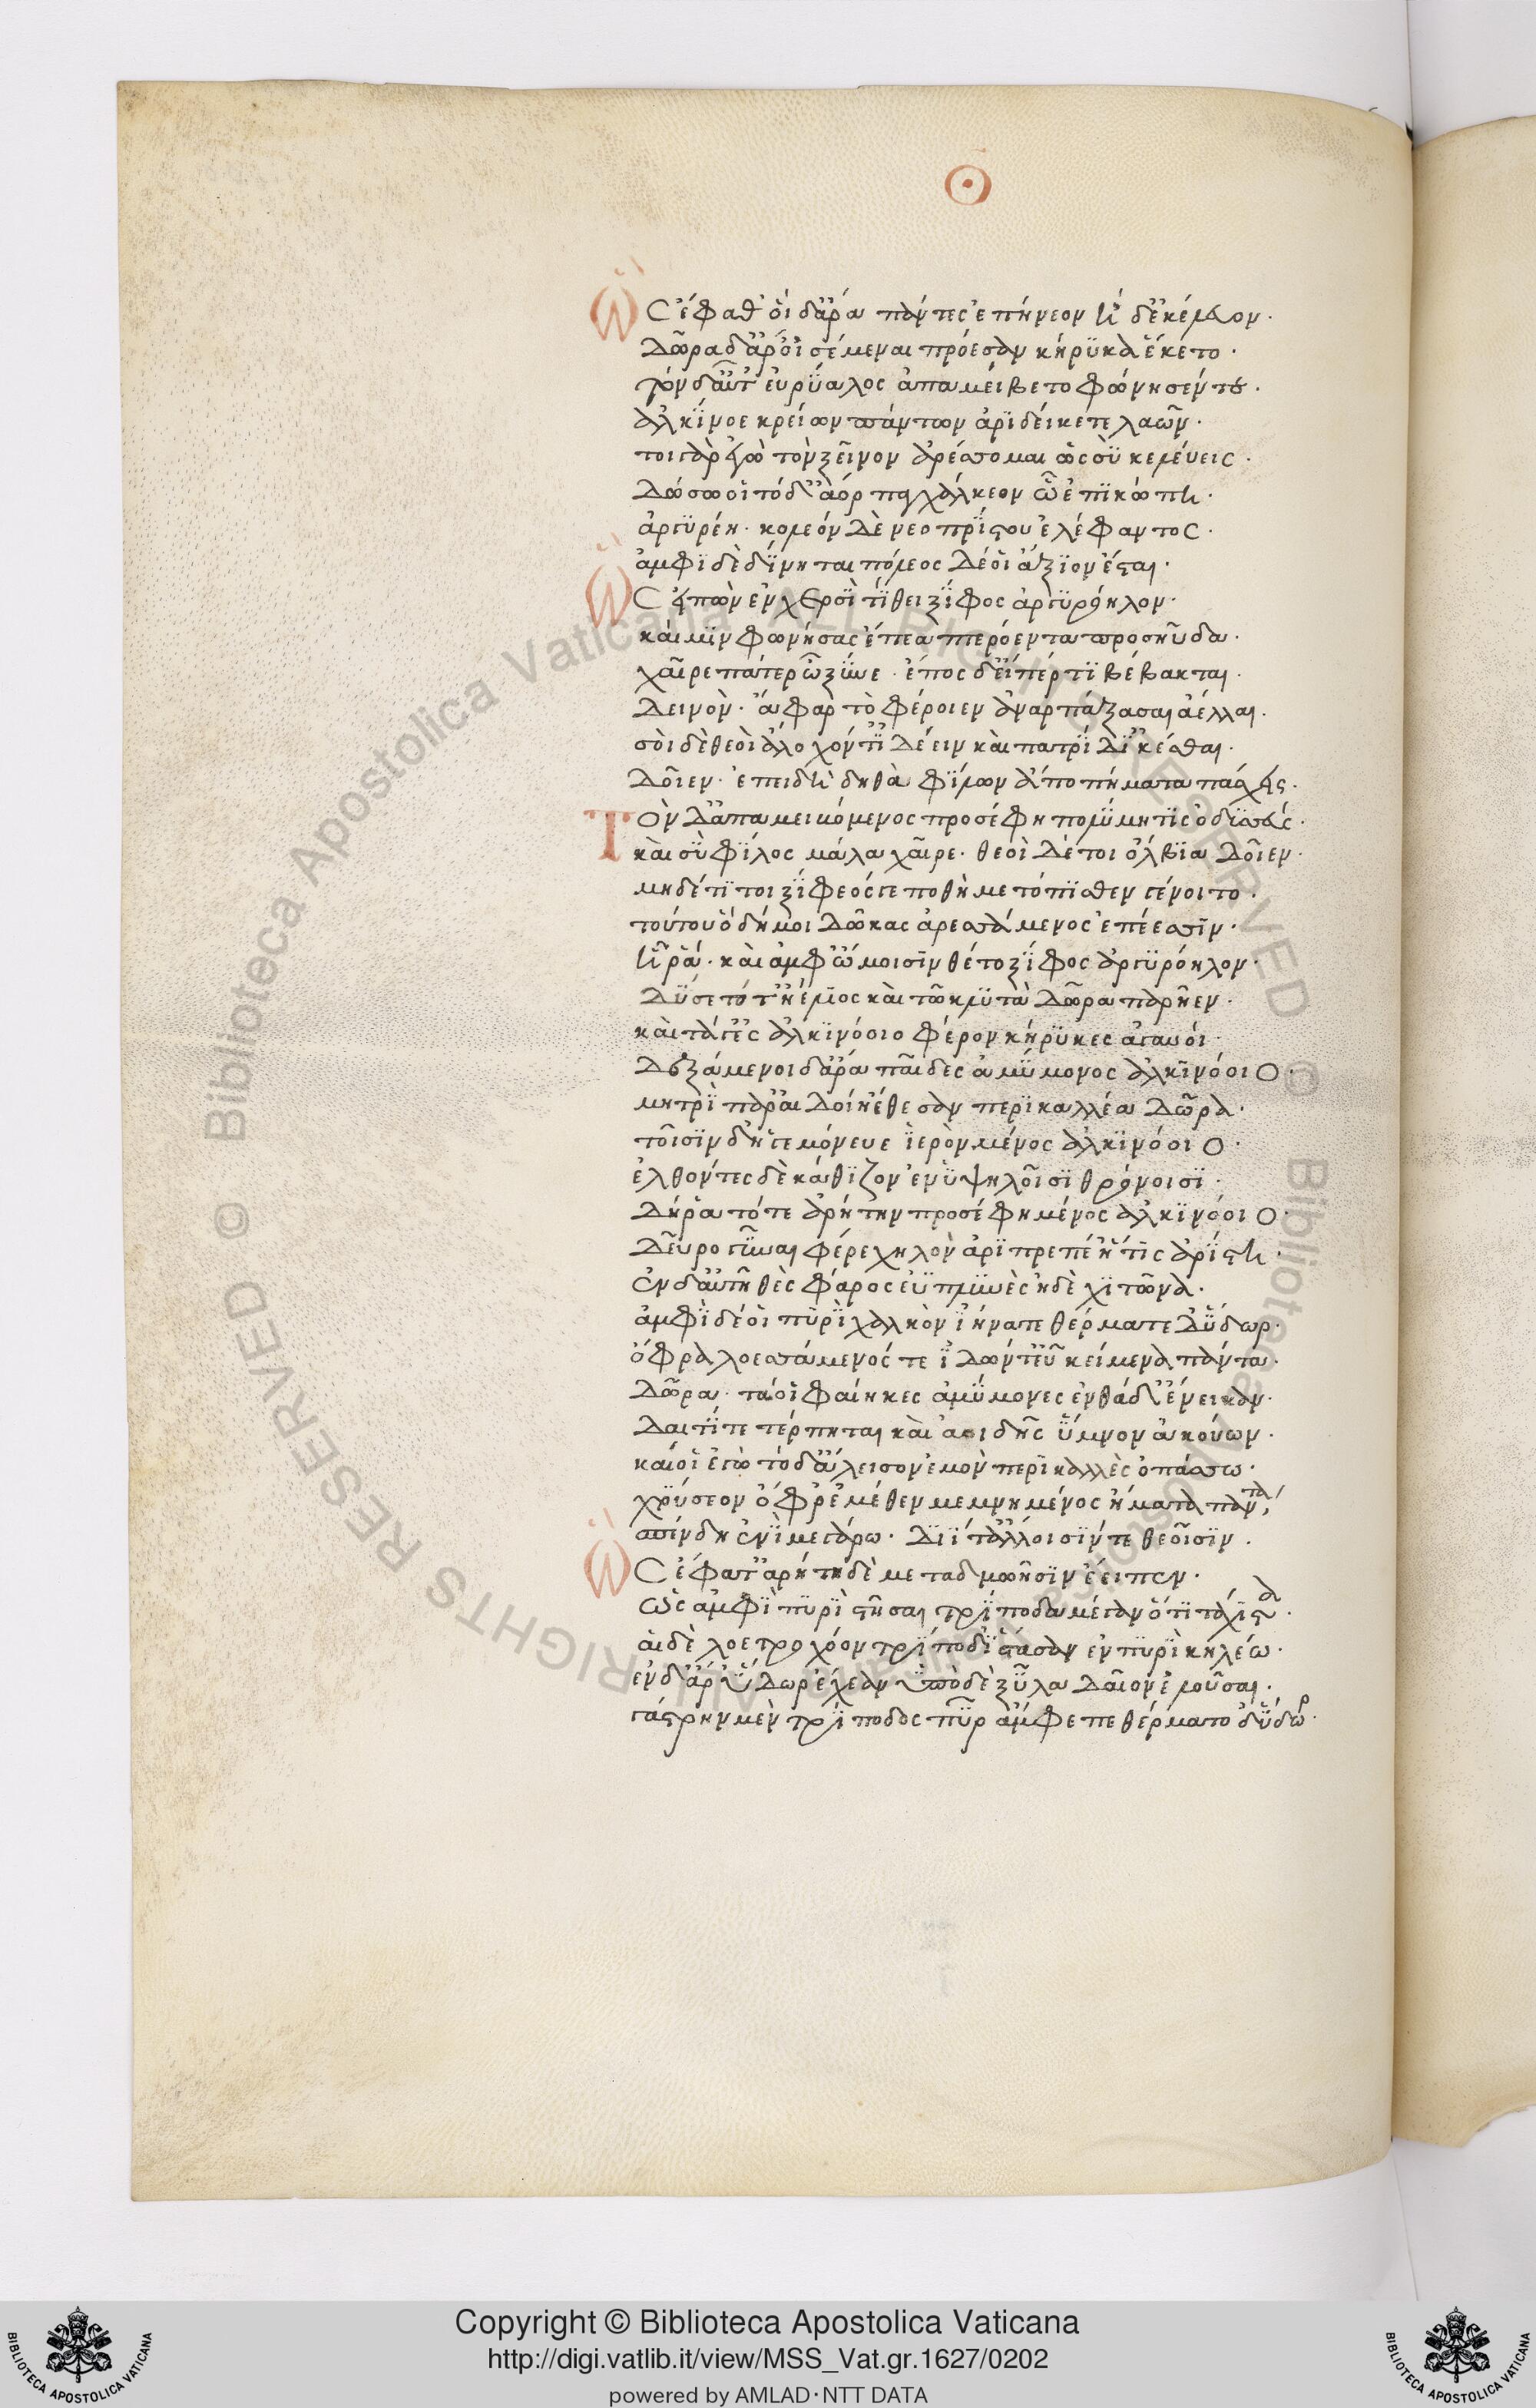 Θ
Ὣς ἔφαθ' ὁι δ' ἄρα πάντες ἐπήνεον ἠδ' ἐκέλευον·
δῶρα δ' ἄρ' ὀισέμεναι πρόεσαν κήρυκα ἕκαστος·
τὸν δ' αὖτ' ἐυρύαλος ἀπαμείβετο φώνησέν τε·
ἀλκίνοε κρείων πάντων ἀριδείκετε λαῶν·
τοιγὰρ ἐγὼ τὸν ξεῖνον ἀρέσομαι ὡς σὺ κελεύεις·
δώσω οἱ τόδ' ἄορ παγχάλκεον ὧ ἔπι κώπη·
ἀργυρέη· κολεὸν δὲ νεοπρίστου ἐλέφαντος·
ἀμφιδεδίνηται πολέος δέ οἱ ἄξιον ἔσται·
Ὣς εἰπὼν ἐν χερσὶ τίθει ξίφος ἀργυρόηλον·
καί μιν φωνήσας ἔπεα πτερόεντα προσηύδα·
χαῖρε πάτερ ὦ ξεῖνε· ἔπος δ' εἴπέρ τι βέβακται·
δεινὸν· ἄφαρ τὸ φέροιεν ἀναρπάξασαι ἄελλαι·
σοὶ δὲ θεοὶ ἄλοχόν τ' ἰδέειν καὶ πατρίδ' ἱκέσθαι·
δοῖεν· ἐπειδὴ δηθὰ φίλων ἄπο πήματα πάσχεις·
Τὸν δ' ἀπαμειβόμενος προσέφη πολύμητις ὀδυσσεύς·
καὶ σὺ φίλος μάλα χαῖρε· θεοὶ δέ τοι ὄλβια δοῖεν·
μηδέ τι τοι ξίφεός γε ποθὴ μετόπισθεν γένοιτο·
τούτου ὃ δή μοι δῶκας ἀρεσσάμενος ἐπέεσσιν·
ἦ ῥα· καὶ ἀμφ' ὤμοισιν θέτο ξίφος ἀργυρόηλον·
δύσετό τ' ἠέλιος καὶ τῶ κλυτὰ δῶρα παρῆεν·
καὶ τάγ' ἐς ἀλκινόοιο φέρον κήρυκες ἀγαυοί·
δεξάμενοι δ' ἄρα παῖδες ἀμύμονος ἀλκινόοιο·
μητρὶ παρ' αἰδοίη ἔθεσαν περικαλλέα δῶρα·
τοῖσιν δ' ἡγεμόνευε ἱερὸν μένος ἀλκινόοιο·
ἐλθόντες δὲ κάθιζον ἐν ὑψηλοῖσι θρόνοισι·
δή ῥα τότε ἀρήτην προσέφη μένος ἀλκινόοιο·
δεῦρο γύναι φέρε χηλὸν ἀριπρεπέ' ἥτις ἀρίστη·
ἐν δ' αὐτῆ θὲς φᾶρος ἐυπλυνὲς ἠδὲ χιτῶνα·
ἀμφὶ δέ οἱ πυρὶ χαλκὸν ἰήνατε θέρμετε δ' ὕδωρ·
ὄφρα λοεσσάμενός τε ἰδών τ' εὖ κείμενα πάντα·
δῶρα· τά οἱ φαίηκες ἀμύμονες ἐνθάδ' ἔνεικαν·
δαιτί τε τέρπηται καὶ ἀοιδῆς ὕμνον ἀκούων·
καί οἱ ἐγὼ τόδ' ἄλεισον ἐμὸν περικαλλὲς ὀπάσσω·
χρύσεον ὄφρ' ἐμέθεν μεμνημένος ἤματα πάντα
σπένδη ἐνὶ μεγάρω· διί τ' ἄλλοισίν τε θεοῖσιν·
Ὣς ἔφατ' ἀρήτη δὲ μετὰ δμωῆσιν ἔειπεν·
ὣς ἀμφὶ πυρὶ στῆσαι τρίποδα μέγαν ὅτι τάχιστα·
αἱ δὲ λοετροχόον τρίποδ' ἵστασαν ἐν πυρὶ κηλέω·
ἐν δ' ἄρ' ὕδωρ ἔχεαν ὑπὸ δὲ ξύλα δαῖον ἑλοῦσαι·
γάστρην μὲν τρίποδος πῦρ ἄμφεπε θέρματο δ' ὕδωρ·
Copyright © Biblioteca Apostolica Vaticana
http://digi.vatlib.it/view/MSS_Vat.gr.1627/0202
powered by AMLAD·NTT DATA